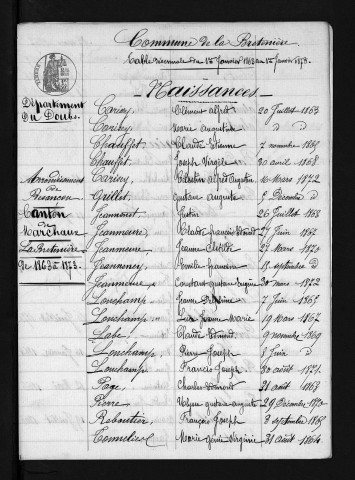 Commune de la Bretenière
Table décennale du 1er Janvier 1863 au 1er Janvier 1873.
Naissances.
Département
Du Doubs
Arrondissement
de
Besançon
Canton
de
Marchaux
La Bretenière
De 1863 à 1873.
Clément Alfred 20 Juillet 1863
Marie Augustine d
Chauffet Claude Etienne 7 novembre 1865
Chauffet Joseph Virgile 30 avril 1868
Célestin Alfred Augustin 10 Mars 1872
Grillet Gustave Auguste 5 Décembre d
Justin 26 Juillet 1868
Claude François 27 Juin 1872
Jeanne Clotilde 27 Mars 1870
septembre d
Constant Gustave Eugène 30 mars 1872
Lonchamp Jeanne 7 Juin 1865
Lonchamp Marie 19 Mars 1867
Labe Claude 9 novembre 1869
Lonchamp Pierre Joseph 8 Juin d
Lonchamp Francis Joseph 30 août 1871
Page Charles Edmond 31 août 1868
Pierre Ulysse Gustave Auguste 29 Décembre 1870
Reboutier François Joseph 8 septembre 1865
Tonnelier Marie Génie Virginie 31 Août 1864